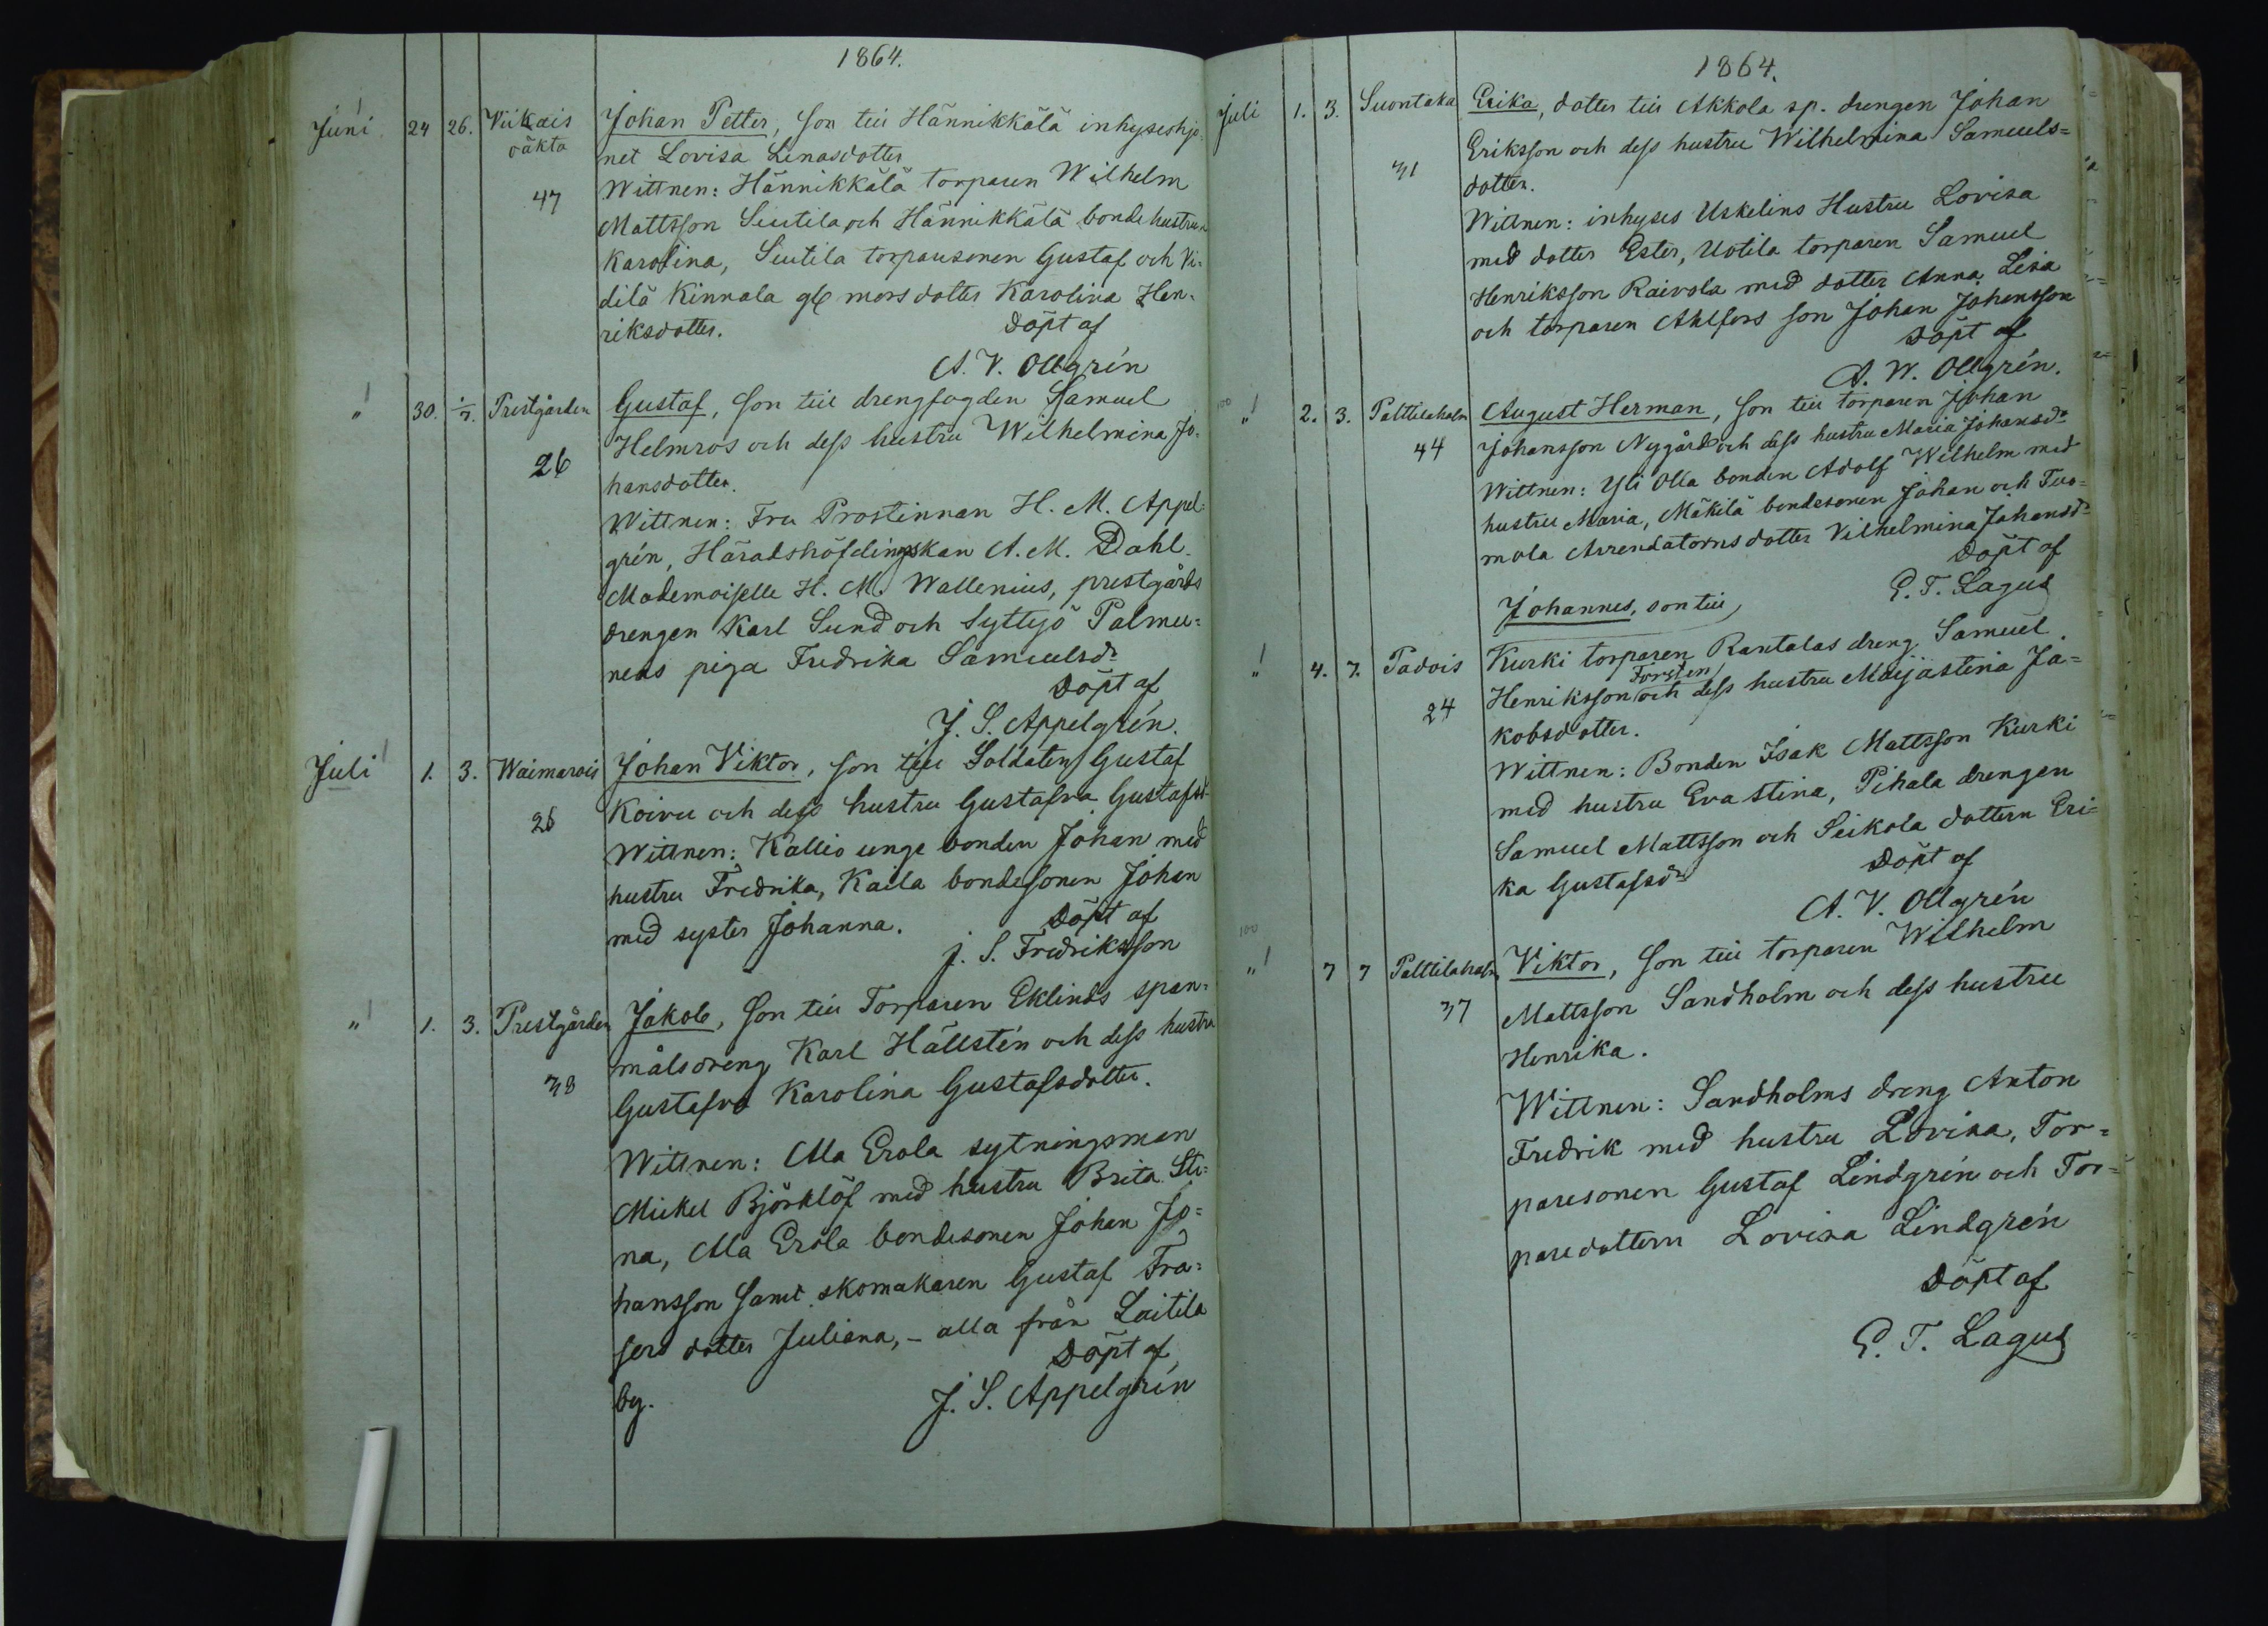 1864.
Juni 24 26. Viikais Johan Petter, son till Hännikkälä inhyseshjo
oäkta net Lovisa Linasdotter
47 Wittnen: Hännikkälä torparen Wilhelm
Mattsson Siutila och Hännikkälä bondehustrun
Karolina, Siutila torparesonen Gustaf och Vi-
dilä Kinnala gl mors dotter Karolina Hen-
riksdotter. Döpt af
A. V. Ollgrén
" 30. 1/7. Prestgården Gustaf, son till drengfogden Samuel
Helmros och dess hustru Wilhelmina Jo-
26 hansdotter.
Wittnen: Fru Prostinnan H. M. Appel-
grén, Häradshöfdingskan A. M. Dahl
Mademoiselle H. M. Wallenius, prestgårds
drengen Karl Sund och Syttyö Palmu-
nens piga Fredrika Samuelsdr
Döpt af
J. S. Appelgrén.
Juli 1. 3. Waimarois Johan Viktor, son till Soldaten Gustaf
26 Koivu och dess hustru Gustafva Gustafsd
Wittnen: Kallio unge bonden Johan med
hustru Fredrika, Kaila bondesonen Johan
med syster Johanna. Döpt af
J. S. Fredriksson
" 1. 3. Prestgården Jakob, son till Torparen Eklinds span-
målsdreng Karl Hällstén och dess hustru
38 Gustafva Karolina Gustafsdotter.
Wittnen: Ala Erola sytningsman
Mickel Björklöf med hustru Brita Sti-
na, Ala Erola bondesonen Johan Jo-
hansson samt skomakaren Gustaf Fra-
sers dotter Juliana, - alla från Laitila
by. Döpt af
J. S. Appelgrén
1864.
Juli 1. 3. Suontaka Erika, dotter till Akkola sp. drengen Johan
Eriksson och dess hustru Wilhelmina Samuels=
31 dotter.
Wittnen: inhyses Uskelins Hustru Lovisa
med dotter Ester, Uotila torparen Samuel
Henriksson Raivola med dotter Anna Lisa
och torparen Ahlfors son Johan Johansson
Döpt af
A. W. Ollgrén.
100
" 2. 3. Palttilaholm August Herman, son till torparen Johan
44 Johansson Nygård och dess hustru Maria Johansdr
Wittnen: Yli Olla bonden Adolf Wilhelm med
hustru Maria, Mäkilä bondesonen Johan och Tuo=
mola Arrendatorns dotter Vilhelmina Johansdr
Döpt af
E. T. Lagus
Johannes, son till
" 4. 7. Padois Kurki torparen Rantalas dreng Samuel
Forstén
24 Henriksson och dess hustru Maijastina Ja=
kobsdotter.
Wittnen: Bonden Isak Mattsson Kurki
med hustru Eva Stina, Pihala drengen
Samuel Mattsson och Seikola dottern Eri=
ka Gustafsdr Döpt af
A. V. Ollgrén
100
" 7 7 Palttilaholm Viktor, son till torparen Wilhelm
37 Mattsson Sandholm och dess hustru
Henrika.
Wittnen: Sandholms dreng Anton
Fredrik med hustru Lovisa, Tor=
paresonen Gustaf Lindgrén och Tor=
paredottern Lovisa Lindgrén
Döpt af
E. T. Lagus